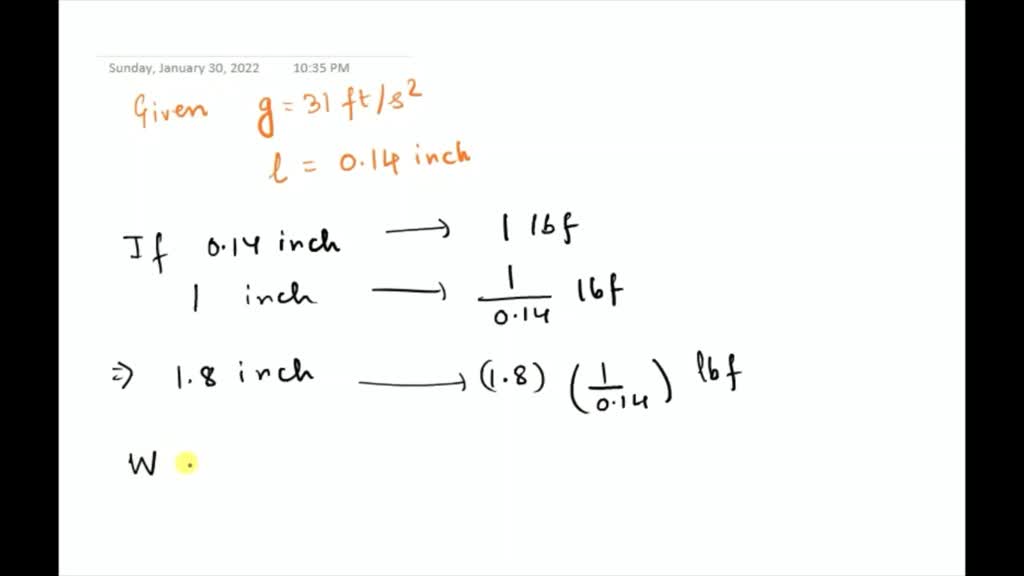 Sunday, January 30, 2022 10:35 PM
Given g = 31 ft/s²
l = 0.14 inch
If 0.14 inch → 1 lbf
1 inch → 1/0.14 lbf
⇒ 1.8 inch → (1.8) (1/0.14) lbf
W